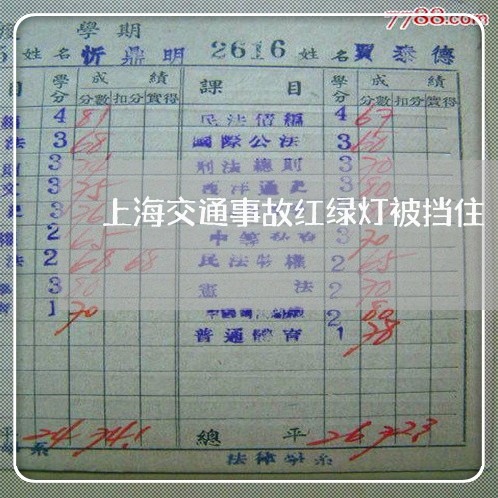 7788.com
學期
姓名 忻鼎明 2616 姓名 賈泰德
目 學分 成績 課目 學分 成績
分數 扣分 實得 分數 扣分 實得
4 81 民法債編 4 67
法 3 68 國際公法 3 60
3 刑法總則 3 70
3 75 西洋通史 3 80
上海交通事故红绿灯被挡住
2 65 3 70
法 2 68 68 民法物權 2 65
3 80 憲法 2 70
1 70 2 80
普通體育 1 78
平 24 74.1 總平 26 72.3
系 法律學系